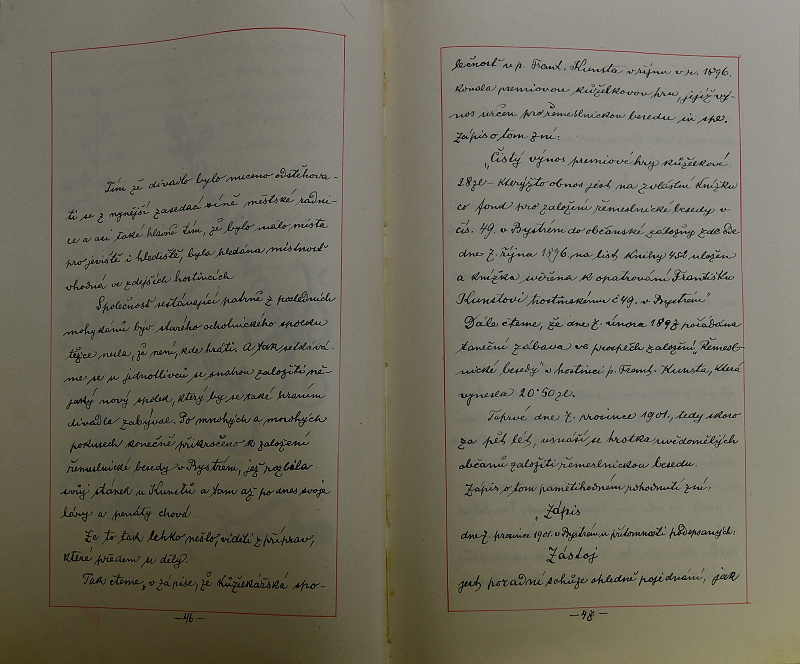 Tím že divadlo bylo nuceno odstěhova-
ti se z nynější zasedací síně městské radni-
ce a asi také hlavně tím, že bylo málo místa
pro jeviště i hlediště, byla hledána místnost
vhodná ve zdejších hostincích.
Společnost sestávající patrně z posledních
mohykánů býv. starého ochotnického spolku
těžce nesla, že není, kde hráti. A tak setkává-
me se u jednotlivců se snahou založiti ně-
jaký nový spolek, který by se také hraním
divadla zabýval. Po mnohých a mnohých
pokusech konečně přikročeno k založení
řemeslnické besedy v Bystrém, jež rozbila
svůj stánek u Kunstů a tam až po dnes svoje
láry a penáty chová.
Že to tak lehko nešlo, viděti z příprav,
které předem se děly.
Tak čteme, v zápise, že Kůželkářská spo-
—46—
lečnost u p. Frant. Kunsta v říjnu v r. 1896.
konala premiovou kůželkovou hru, jejíž vý-
nos určen pro řemeslnickou besedu in spe.
Zápis o tom zní:
„Čistý výnos premiové hry kůželkové
28 zl – kterýžto obnos jest na zvláštní knížku
co fond pro založení řemeslnické besedy v
čís. 49. v Bystrém do občanské záložny zde ode
dne 7. října 1896 na list knihy 458 uložen
a knížka svěřena k opatrování Františku
Kunstovi hostinskému č 49. v Bystrém"
Dále čteme, že dne 7. února 1897 pořádána
taneční zábava ve prospěch založení „Řemesl-
nické besedy" v hostinci p. Frant. Kunsta, která
vynesla 20·50 zl.
Teprvé dne 7. prosince 1901, tedy skoro
za pět let, usnáší se hrstka uvědomělých
občanů založiti řemeslnickou besedu.
Zápis o tom pamětihodném rohodnutí zní:
„Zápis
dne 7. prosince 1901. v Bystrém, u přítomnosti podepsaných:
Zástoj
jest, poradní schůze ohledně pojednání, jak
—47—